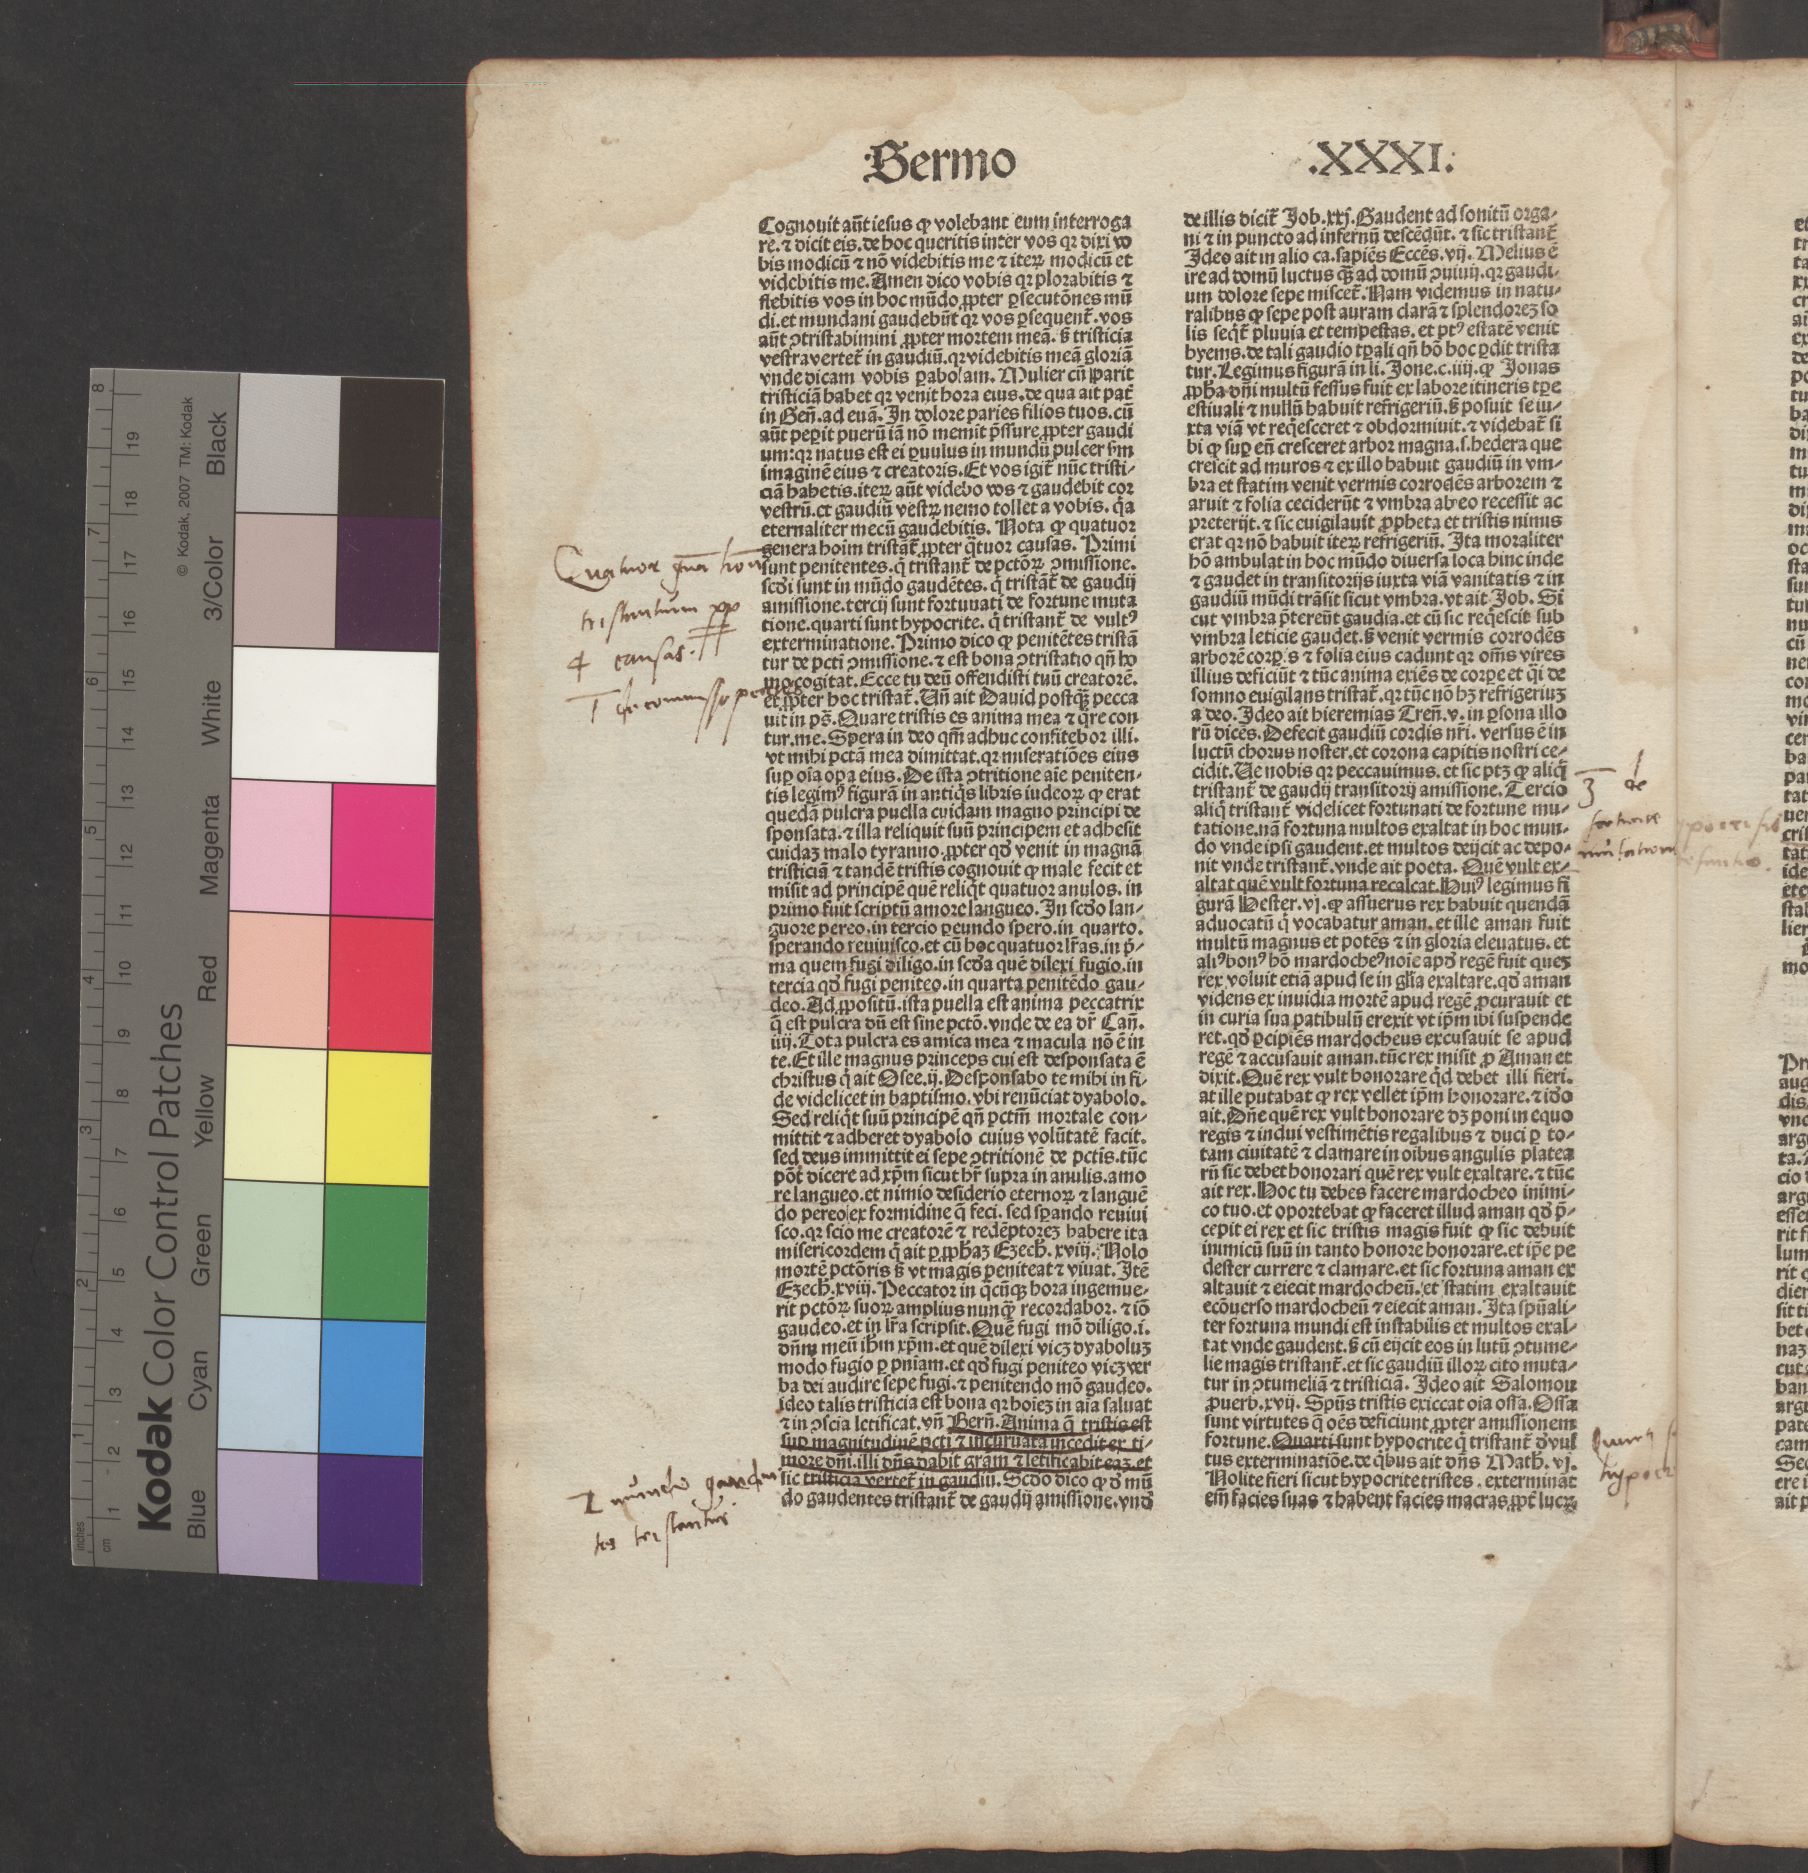 :Sermo
.XXXI:
Cognouit aūt iesus ꝙ volebant eum interroga
re.⁊ dicit eis.de hoc queritis inter vos qꝛ dixi vo
bis modicū ⁊ nō videbitis me ⁊ iteꝝ modicū et
videbitis me.Amen dico vobis qꝛ plorabitis ⁊
flebitis vos in hoc mūdo ꝓpter ꝑsecutōnes mū
di.et mundani gaudebūt qꝛ vos ꝑsequent̄.vos
aūt ꝯtristabimini ꝓpter mortem meā.s̄ tristicia
vestra vertet̄ in gaudiū.qꝛ videbitis meā gloriā
vnde dicam vobis ꝑabolam.Mulier cū parit
tristiciā habet qꝛ venit hora eius.de qua ait pat̄
in Gen̄.ad euā.In dolore paries filios tuos.cū
aūt peꝑit puerū iā nō memit p̄ssure ꝓpter gaudi
um:qꝛ natus est ei ꝑuulus in mundū pulcer ẜm
imaginē eius ⁊ creatoris.Et vos igit̄ nūc tristi-
ciā habetis.iteꝝ aūt videbo vos ⁊ gaudebit cor
vestrū.et gaudiū vestꝝ nemo tollet a vobis.q̄a
eternaliter mecū gaudebitis. Nota ꝙ quatuor
genera hoīm tristāt̄ ꝓpter q̄tuor causas. Primi
sunt penitentes.q̄ tristant̄ de pctōꝝ ꝯmissione.
scd̄i sunt in mūdo gaudētes.q̄ tristāt̄ de gaudij
amissione.tercij sunt fortunati de fortune muta
tione.quarti sunt hypocrite.q̄ tristant̄ de vultꝰ
exterminatione.Primo dico ꝙ penitētes tristā
tur de pcti ꝯmissione.⁊ est bona ꝯtristatio qn̄ ho
mo cogitat.Ecce tu deū offendisti tuū creatorē.
et ꝓpter hoc tristat̄.Vn̄ ait Dauid postꝙ̄ pecca
uit in ps̄.Quare tristis es anima mea ⁊ q̄re con
tur.me.Spera in deo qm̄ adhuc confitebor illi.
vt mihi pctā mea dimittat.qꝛ miseratiōes eius
suꝑ oīa oꝑa eius.De ista ꝯtritione aīe peniten-
tis legimꝰ figurā in antiq̄s libris iudeoꝝ ꝙ erat
quedā pulcra puella cuidam magno principi de
sponsata.⁊ illa reliquit suū principem et adhesit
cuidaz malo tyranno.ꝓpter qd̄ venit in magnā
tristiciā ⁊ tandē tristis cognouit ꝙ male fecit et
misit ad principē quē reliq̄t quatuor anulos.in
primo fuit scriptū amore langueo.In scd̄o lan-
guore pereo.in tercio ꝑeundo spero.in quarto.
sperando reuiuisco.et cū hoc quatuor lr̄as.in p̄-
ma quem fugi diligo.in scd̄a quē dilexi fugio.in
tercia qd̄ fugi peniteo.in quarta penitēdo gau-
deo.Ad ꝓpositū.ista puella est anima peccatrix
q̄ est pulcra dū est sine pctō.vnde de ea dr̄ Can̄.
iiij.Tota pulcra es amica mea ⁊ macula nō ē in
te.Et ille magnus princeps cui est desponsata ē
christus q̄ ait Osee.ij.Desponsabo te mihi in fi-
de videlicet in baptismo.vbi renūciat dyabolo.
Sed reliq̄t suū principē qn̄ pctm̄ mortale con-
mittit ⁊ adheret dyabolo cuius volūtatē facit.
sed deus immittit ei sepe ꝯtritionē de pctis.tūc
pōt dicere ad xp̄m sicut hr̄ supra in anulis.amo
re langueo.et nimio desiderio eternoꝝ ⁊ languē
do pereo ex formidine q̄ feci.sed sꝑando reuiui
sco.qꝛ scio me creatorē ⁊ redēptorez habere ita
misericordem q̄ ait ꝑ ꝓphaz Ezech̄.xviij. Nolo
mortē pctōris s̄ vt magis peniteat ⁊ viuat.Itē
Ezech̄.xviij.Peccator in q̄cūqꝫ hora ingemue-
rit pctōꝝ suoꝝ amplius nunꝙ̄ recordabor.⁊ iō
gaudeo.et in lr̄a scripsit.Quē fugi mō diligo.i.
dn̄m meū ih̄m xp̄m.et quē dilexi vicꝫ dyaboluz
modo fugio ꝑ pn̄iam.et qd̄ fugi peniteo vicꝫ ver
ba dei audire sepe fugi.⁊ penitendo mō gaudeo.
ideo talis tristicia est bona qꝛ hoiez in aīa saluat
⁊ in ꝯscīa letificat.vn̄ Bern̄.Anima q̄ tristis est
suꝑ magnitudinē pcti ⁊ incuruata incedit ex ti-
more dn̄i.illi dn̄s dabit grām ⁊ letificabit eaz.et
sic tristicia vertet̄ in gaudiū.Scd̄o dico ꝙ d̄ mū
do gaudentes tristant̄ de gaudij amissione.vnd̄
de illis dicit̄ Job.xxj.Gaudent ad sonitū orga-
ni ⁊ in puncto ad infernū descēdūt.⁊ sic tristant̄
Ideo ait in alio ca.sapiēs Eccēs.vij. Melius ē
ire ad domū luctus ꝙ̄ ad domū ꝯuiuij.qꝛ gaudi-
um dolore sepe miscet̄.Nam videmus in natu-
ralibus ꝙ sepe post auram clarā ⁊ splendorez so
lis seq̄t̄ pluuia et tempestas.et ptꝰ estatē venit
hyems.de tali gaudio tꝑali qn̄ hō hoc ꝑdit trista
tur.Legimus figurā in li.Jone.c.iiij.ꝙ Jonas
ꝓpha dn̄i multū fessus fuit ex labore itineris tꝑe
estiuali ⁊ nullū habuit refrigeriū.s̄ posuit se iu-
xta viā vt reqͥesceret ⁊ obdormiuit.⁊ videbat̄ si
bi ꝙ suꝑ eū cresceret arbor magna.s.hedera que
crescit ad muros ⁊ ex illo habuit gaudiū in vm-
bra et statim venit vermis corrodēs arborem ⁊
aruit ⁊ folia ceciderūt ⁊ vmbra ab eo recessit ac
preterijt.⁊ sic euigilauit ꝓpheta et tristis nimis
erat qꝛ nō habuit iteꝝ refrigeriū. Ita moraliter
hō ambulat in hoc mūdo diuersa loca hinc inde
⁊ gaudet in transitorijs iuxta viā vanitatis ⁊ in
gaudiū mūdi trāsit sicut vmbra.vt ait Job. Si
cut vmbra p̄tereūt gaudia.et cū sic reqͥescit sub
vmbra leticie gaudet.s̄ venit vermis corrodēs
arborē corꝑis ⁊ folia eius cadunt qꝛ om̄s vires
illius deficiūt ⁊ tūc anima exiēs de corꝑe et q̄i de
somno euigilans tristat̄.qꝛ tūc nō hꝫ refrigeriuz
a deo.Ideo ait hieremias Tren̄.v. in ꝑsona illo
rū dicēs.Defecit gaudiū cordis nr̄i. versus ē in
luctū chorus noster.et corona capitis nostri ce-
cidit.Ve nobis qꝛ peccauimus.et sic ptꝫ ꝙ aliq̄
tristant̄ de gaudij transitorij amissione.Tercio
aliq̄ tristant̄ videlicet fortunati de fortune mu-
tatione.nā fortuna multos exaltat in hoc mun-
do vnde ipsi gaudent.et multos deijcit ac depo-
nit vnde tristant̄.vnde ait poeta. Quē vult ex-
altat quē vult fortuna recalcat.Huiꝰ legimus fi
gurā Hester.vj.ꝙ assuerus rex habuit quendā
aduocatū q̄ vocabatur aman.et ille aman fuit
multū magnus et potēs ⁊ in gloria eleuatus.et
aliꝰ bonꝰ hō mardocheꝰ noīe apd̄ regē fuit quez
rex voluit etiā apud se in gl̄ia exaltare.qd̄ aman
videns ex inuidia mortē apud regē ꝓcurauit et
in curia sua patibulū erexit vt ip̄m ibi suspende
ret.qd̄ ꝑcipiēs mardocheus excusauit se apud
regē ⁊ accusauit aman.tūc rex misit ꝓ Aman et
dixit.Quē rex vult honorare qͥd debet illi fieri.
at ille putabat ꝙ rex vellet ip̄m honorare.⁊ id̄o
ait.Dn̄e quē rex vult honorare dꝫ poni in equo
regis ⁊ indui vestimētis regalibus ⁊ duci ꝑ to-
tam ciuitatē ⁊ clamare in oībus angulis platea
rū sic debet honorari quē rex vult exaltare.⁊ tūc
ait rex.Hoc tu debes facere mardocheo inimi-
co tuo.et oportebat ꝙ faceret illud aman qd̄ p̄-
cepit ei rex et sic tristis magis fuit ꝙ sic debuit
inimicū suū in tanto honore honorare.et ip̄e pe
dester currere ⁊ clamare.et sic fortuna aman ex
altauit ⁊ eiecit mardocheū.et statim exaltauit
ecōuerso mardocheū ⁊ eiecit aman. Ita spūali-
ter fortuna mundi est instabilis et multos exal-
tat vnde gaudent.s̄ cū eijcit eos in lutū ꝯtume-
lie magis tristant̄.et sic gaudiū illoꝝ cito muta-
tur in ꝯtumeliā ⁊ tristiciā. Ideo ait Salomon
ꝓuerb.xvij. Spūs tristis exiccat oīa ossa.Ossa
sunt virtutes q̄ oēs deficiunt ꝓpter amissionem
fortune.Quarti sunt hypocrite q̄ tristant̄ d̄ vul
tus exterminatiōe.de q̄bus ait dn̄s Math̄. vj.
Nolite fieri sicut hypocrite tristes. extermināt
em̄ facies suas ⁊ habent facies macras ꝓpt̄ lucꝝ
Quatuor gn̄a hom̄
tristantium pp
4 causas.
I de commisso peccato
2 mundo gauden
tes tristantur
3 de
fortune
mutatione
Quarti
hypocr
Kodak Color Control Patches
© Kodak, 2007 TM: Kodak
Blue Cyan Green Yellow Red Magenta White 3/Color Black
inches 1 2 3 4 5 6 7 8
cm 1 2 3 4 5 6 7 8 9 10 11 12 13 14 15 16 17 18 19